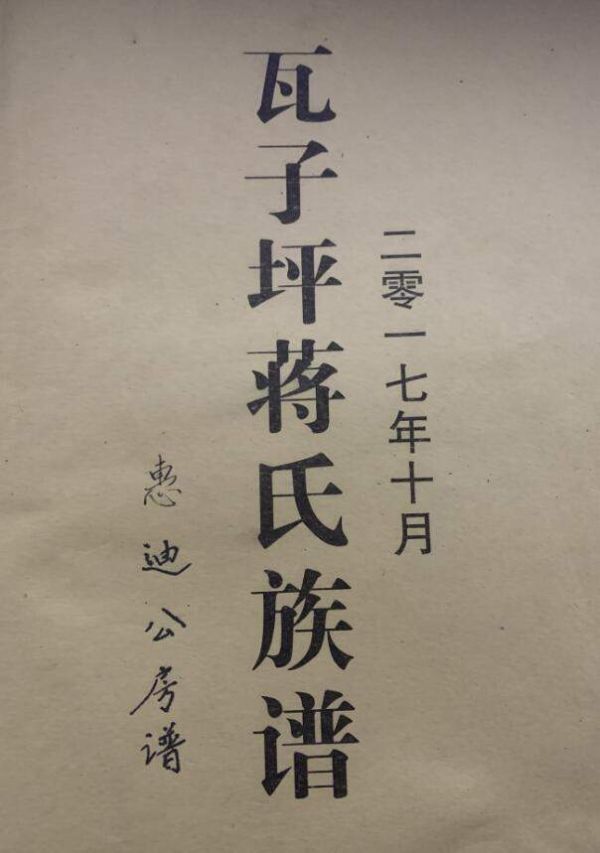 二零一七年十月
瓦子坪蒋氏族谱
惠迪公房谱